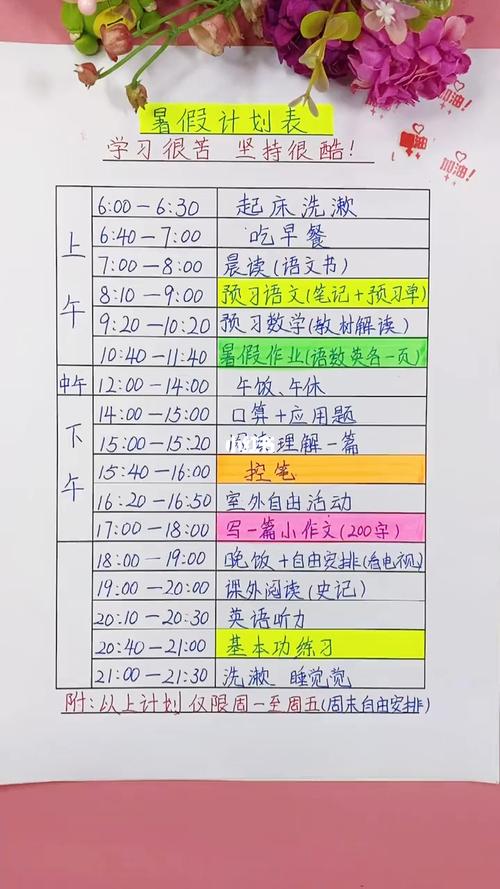 暑假计划表
学习很苦 坚持很酷!
加油!
加油!
上午
6:00－6:30 起床洗漱
6:40－7:00 吃早餐
7:00－8:00 晨读(语文书)
8:10－9:00 预习语文(笔记+预习单)
9:20－10:20 预习数学(教材解读)
10:40－11:40 暑假作业(语数英各一页)
中午
12:00－14:00 午饭、午休
下午
14:00－15:00 口算+应用题
15:00－15:20 理解一篇
15:40－16:00 控笔
16:20－16:50 室外自由活动
17:00－18:00 写一篇小作文(200字)
18:00－19:00 晚饭+自由安排(看电视)
19:00－20:00 课外阅读(史记)
20:10－20:30 英语听力
20:40－21:00 基本功练习
21:00－21:30 洗漱 睡觉觉
附:以上计划仅限周一至周五(周末自由安排)